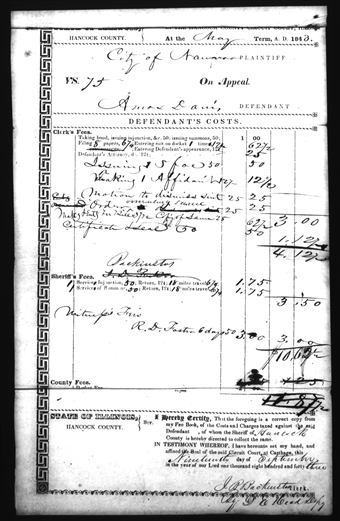 HANCOCK COUNTY. At the May Term, A. D. 1843.
City of Nauvoo PLAINTIFF
VS. 75 On Appeal.
Amos Davis, DEFENDANT
DEFENDANT'S COSTS.
Clerk's Fees.
Taking bond, issuing injunction, &c. 50, issuing summons, 50, 1 00
Filing 8 papers, 6¼ Entering suit on docket 1 time 12½ 62½
Entering Defendant's appearance, 25
Defendant's Attorney, &c. 17½;
Issuing 1 Spoe 50 50
Making 1 Affidavit 12½
Motion to dismiss suit 25 25
Order 25 25
62½ 3.00
Certificate & Seal 50 50
1.12½
4.12½
Backenstos
Sheriff's Fees.
Service Injunction, 50. Return, 12½ 18 miles travel 1.75
Services of Summons, 50. Return, 12½ 18 miles travel 1.75
3.50
Witness Fees
R. D. Foster 6 days 50 3.00 3.00
10.62½
County Fees.
STATE OF ILLINOIS,
HANCOCK COUNTY.
Scr.
I Hereby Certify, That the foregoing is a correct copy from
my Fee Book, of the Costs and Charges taxed against the said
Defendant, of whom the Sheriff of Hancock
County is hereby directed to collect the same.
IN TESTIMONY WHEREOF, I have hereunto set my hand, and
affixed the Seal of the said Circuit Court, at Carthage, this
Nineteenth day of September
in the year of our Lord one thousand eight hundred and forty three
J B Backenstos